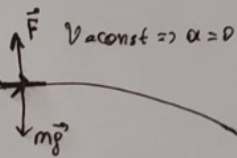 F⃗
V=const => a=0
mg⃗